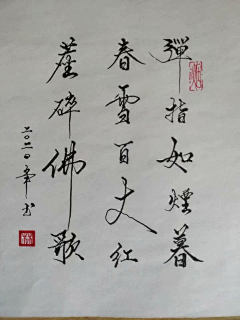 彈指如煙暮
春雪百丈紅
塵碎佛歌
二〇二〇年書